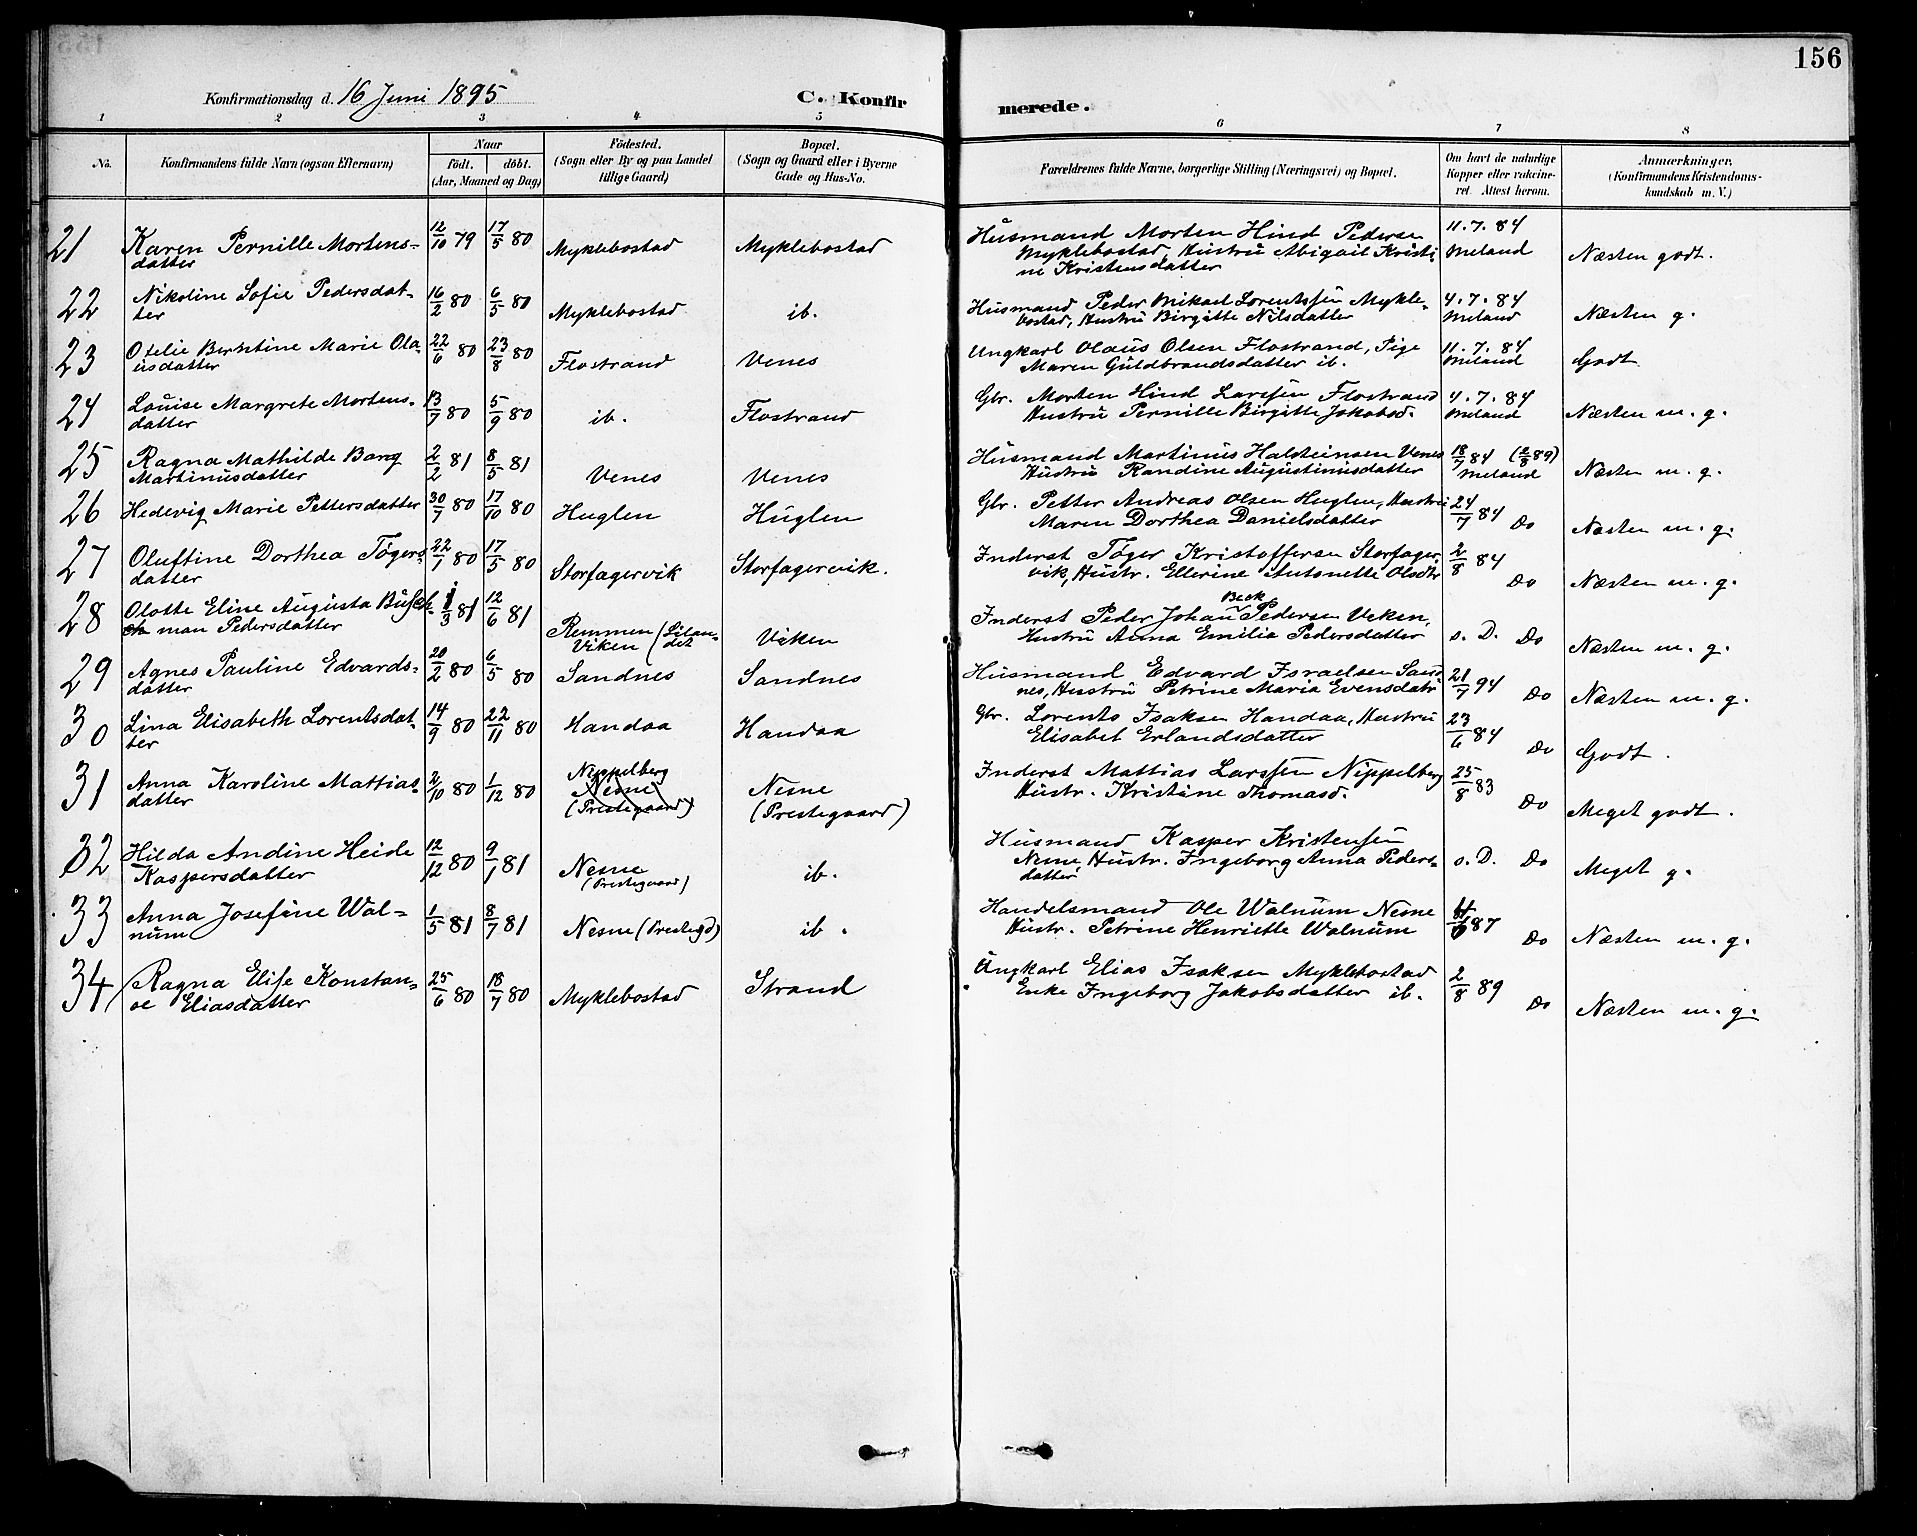 156
Konfirmationsdag d. 16 Juni 1895
C. Konfirmerede.
1 2 3 4 5 6 7 8
No.
Konfirmandens fulde Navn (ogsaa Efternavn)
Naar
født. døbt.
(Aar, Maaned og Dag)
Födested.
(Sogn eller By og paa Landet
tillige Gaard)
Bopæl.
(Sogn og Gaard eller i Byerne
Gade og Hus-No.
Forældrenes fulde Navne, borgerlige Stilling (Næringsvei) og Bopæl.
Om havt de naturlige
Kopper eller vakcine-
ret. Attest herom.
Anmærkninger.
(Konfirmandens Kristendoms-
kundskab m. V.)
21 Karen Pernille Mortens- 12/10 79 17/5 80 Myklebostad Myklebostad Husmand Morten Hind Pedersen 11.7.84
datter Myklebostad, Hustru Abigail Kristi- Meland Næsten godt.
ne Kristensdatter
22 Nikoline Sofie Pedersdat- 16/2 80 6/5 80 Myklebostad ib. Husmand Peder Mikael Lorentssen Mykle- 4.7.84
ter bostad, Hustru Birgitte Nilsdatter Meland Næsten g.
23 Otelie Berntine Marie Ola- 22/6 80 23/8 80 Flostrand Venes Ungkarl Olaus Olsen Flostrand, Pige 11.7.84
usdatter Maren Guldbrandsdatter ib. Meland Godt
24 Louise Margrete Mortens- 13/7 80 5/9 80 ib. Flostrand Gbr. Morten Hind Larssen Flostrand 4.7.84
datter Hustru Pernille Birgitte Jakobsd. Meland Næsten m. g.
25 Ragna Mathilde Bang 2/2 81 8/5 81 Venes Venes Husmand Martinus Halsteinsen Venes 18/7 84 (2/8 89)
Martinusdatter Hustru Randine Augustinusdatter Meland Næsten m. g.
26 Hedevig Marie Pettersdatter 30/7 80 17/10 80 Huglen Huglen Gbr. Petter Andreas Olsen Huglen, Hustru 24/7 84 Do
Maren Dorthea Danielsdatter Næsten m. g.
27 Oluftine Dorthea Tøgers 22/1 80 17/5 80 Storfagervik Storfagervik. Inderst Tøger Kristoffersen Storfager 2/8 84
datter vik, Hustr. Ellerine Antonette Olsdtr Do Næsten m. g.
28 Olotte Eline Augusta Busch 1/3 81 12/6 81 Remmen Viken Inderst Peder Johan Beck Pedersen Viken,
man Pedersdatter Viken Hustru Anna Emilie Pedersdatter s. D. Do Næsten m. g.
29 Agnes Pauline Edvards- 20/2 80 6/5 80 Sandnes Sandnes Husmand Edvard Israelsen Sand
datter nes, Hustru Petrine Maria Evensdatr 21/7 94 Do Næsten m. g.
30 Lina Elisabeth Lorentsdat- 14/9 80 22/11 80 Handaa Handaa Gbr. Lorents Isaksen Handaa, Hustru 23/6 84
ter Elisabet Erlandsdatter Do Godt.
31 Anna Karoline Mattias- 2/10 80 1/12 80 Nippelberg Nesne Inderst Mattias Larssen Nippelberg 25/8 83
datter Nesne (Prestegaard) (Prestegaard) Hustr. Kristine Thomasd. Do Meget godt.
32 Hilda Andine Heide 12/12 80 9/1 81 Nesne ib. Husmand Kasper Kristensen
Kaspersdatter (Prestegaard) Nesne, Hustr. Ingeborg Anna Peders- s. D. Do Meget g.
datter
33 Anna Josefine Wal- 1/5 81 8/7 81 Nesne (Prestegd) ib. Handelsmand Ole Walnum Nesne 87
num Hustr. Petrine Henriette Walnum Do Næsten m. g.
34 Ragna Elise Konstan- 25/6 80 18/7 80 Myklebostad Strand Ungkarl Elias Isaksen Myklebostad 2/8 89
se Eliasdatter Enke Ingeborg Jakobsdatter ib. Do Næsten m. g.